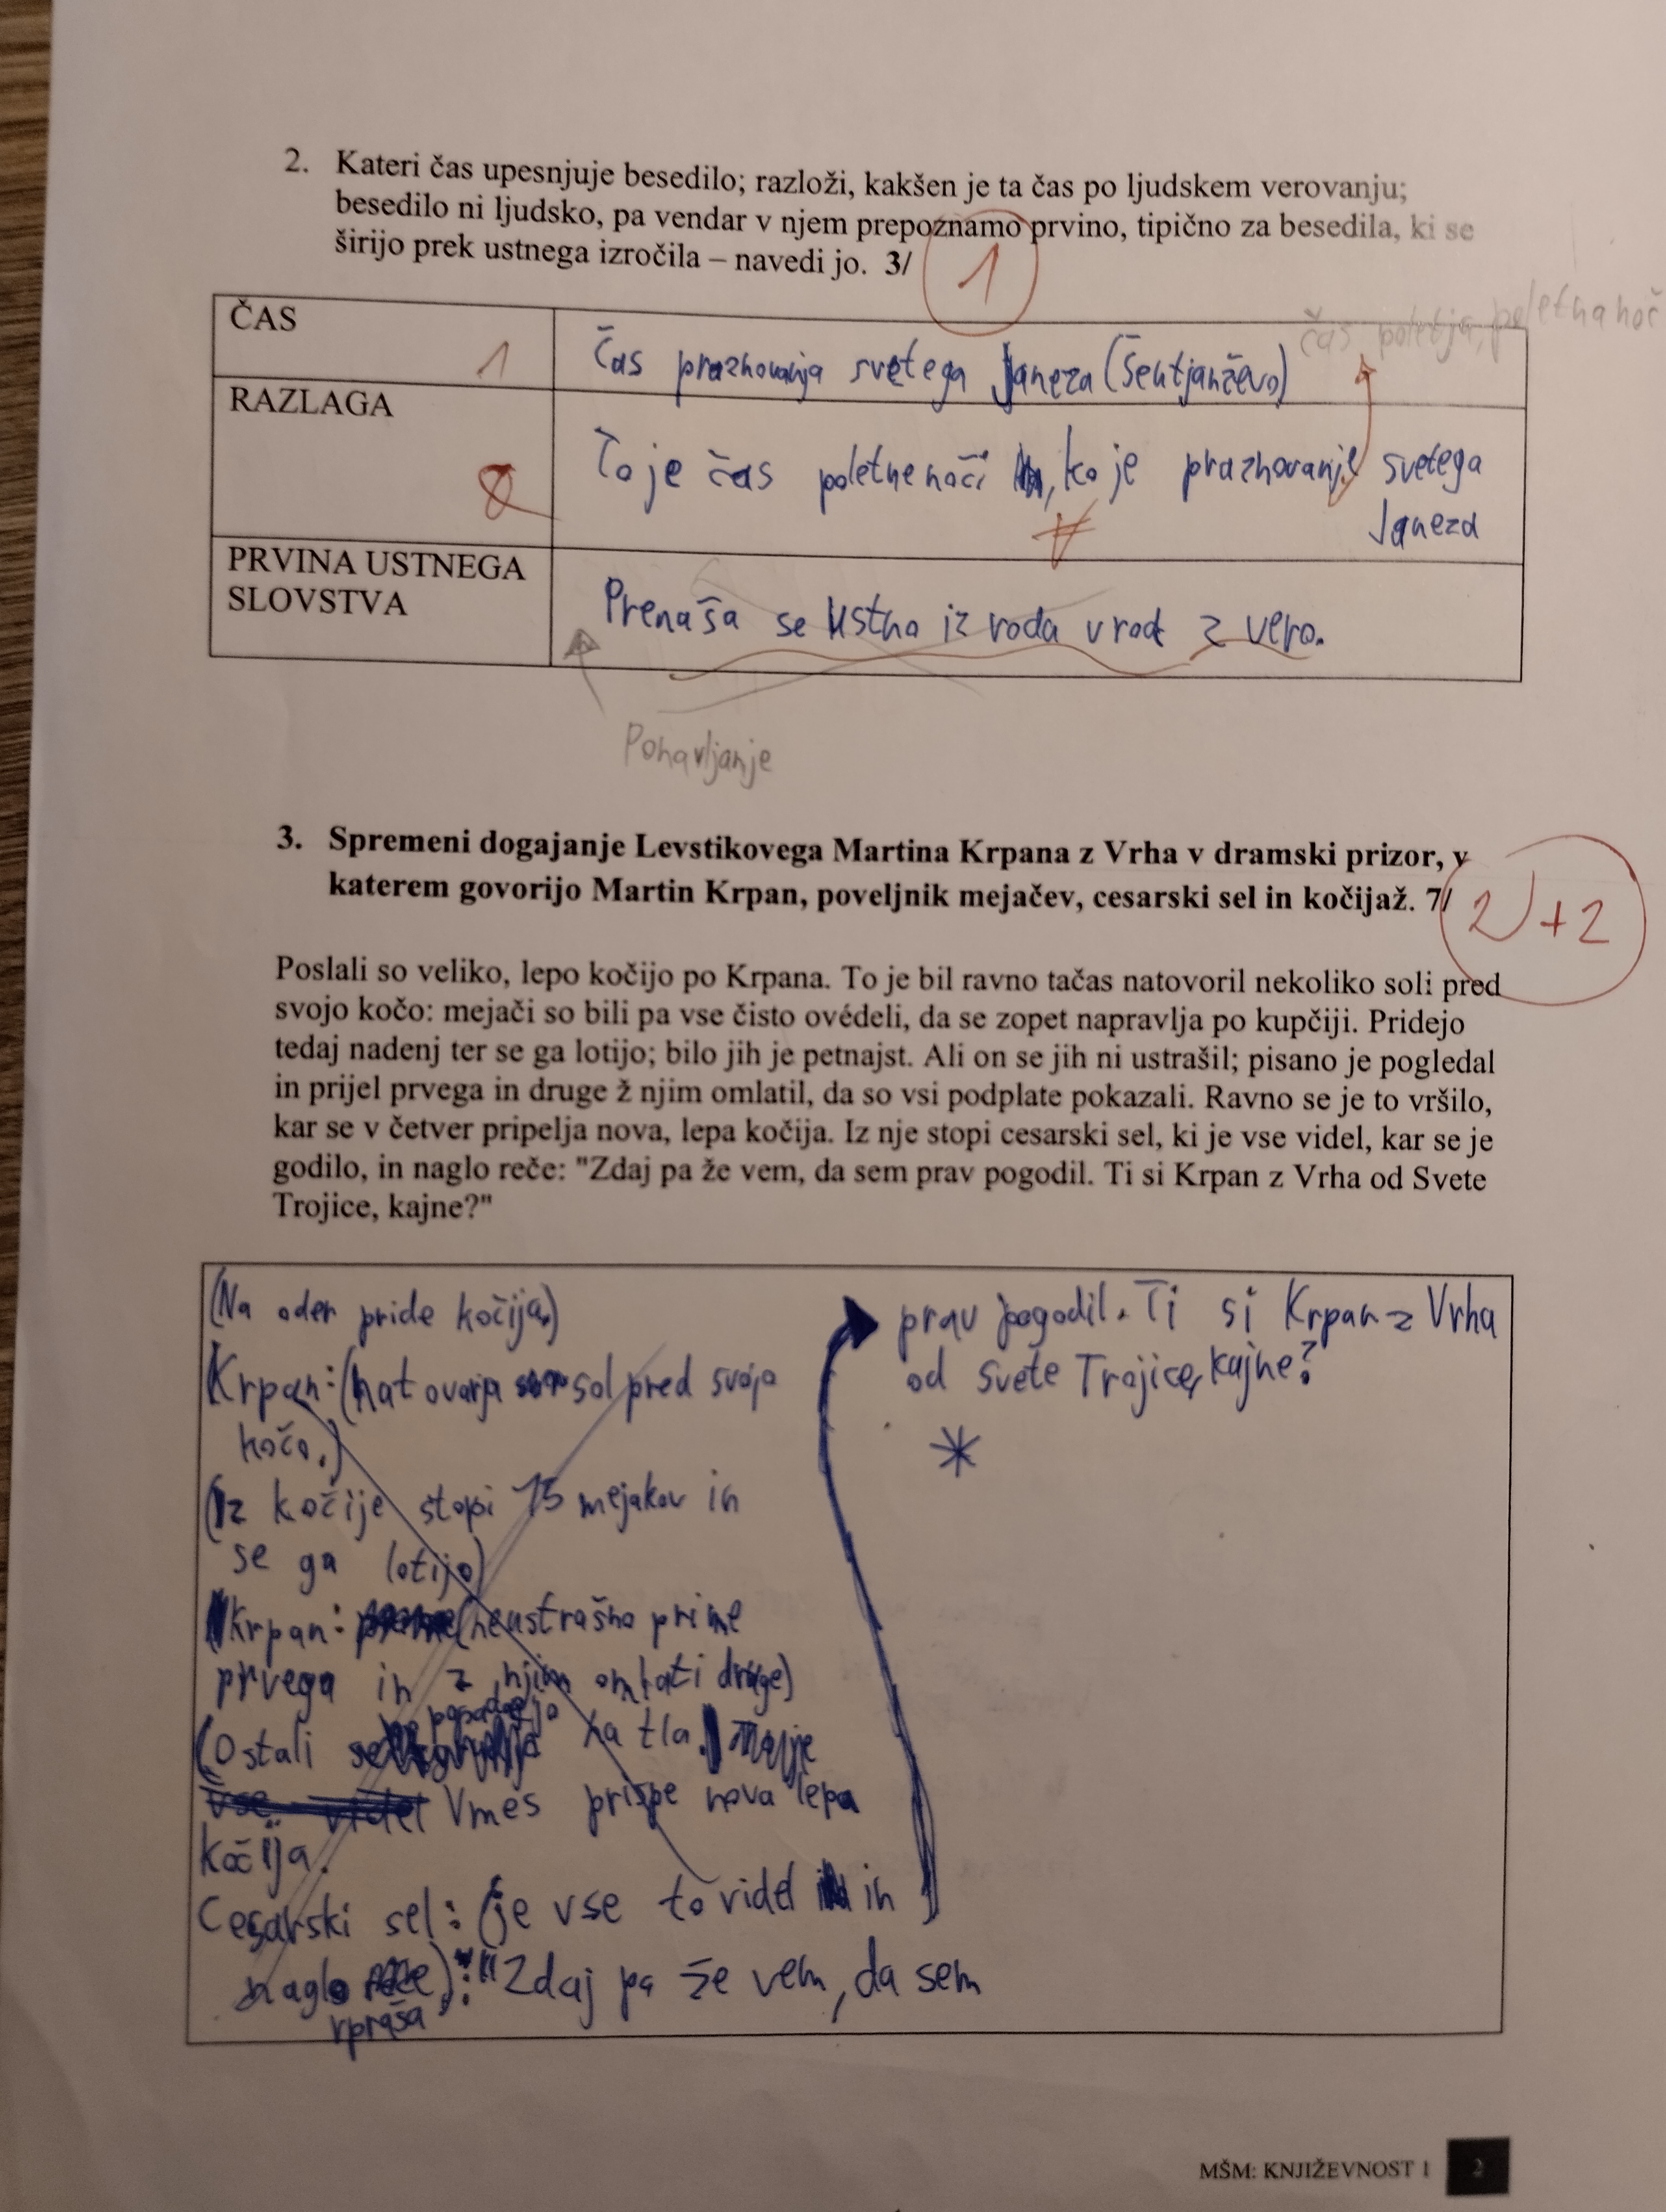 2. Kateri čas upesnjuje besedilo; razloži, kakšen je ta čas po ljudskem verovanju;
besedilo ni ljudsko, pa vendar v njem prepoznamo prvino, tipično za besedila, ki se
širijo prek ustnega izročila – navedi jo. 3/ 1
čas poletja, poletna noč
ČAS 1 Čas praznovanja svetega Janeza (Šentjanževo)
RAZLAGA
To je čas poletne noči, ko je praznovanje svetega
Janeza
PRVINA USTNEGA
SLOVSTVA
Prenaša se ustno iz roda v rod z vero.
Ponavljanje
3. Spremeni dogajanje Levstikovega Martina Krpana z Vrha v dramski prizor, v
katerem govorijo Martin Krpan, poveljnik mejačev, cesarski sel in kočijaž. 7/ 2 + 2
Poslali so veliko, lepo kočijo po Krpana. To je bil ravno tačas natovoril nekoliko soli pred
svojo kočo: mejači so bili pa vse čisto ovédeli, da se zopet napravlja po kupčiji. Pridejo
tedaj nadenj ter se ga lotijo; bilo jih je petnajst. Ali on se jih ni ustrašil; pisano je pogledal
in prijel prvega in druge ž njim omlatil, da so vsi podplate pokazali. Ravno se je to vršilo,
kar se v četver pripelja nova, lepa kočija. Iz nje stopi cesarski sel, ki je vse videl, kar se je
godilo, in naglo reče: "Zdaj pa že vem, da sem prav pogodil. Ti si Krpan z Vrha od Svete
Trojice, kajne?"
(Na oder pride kočija.)
Krpan: (natovarja sol pred svojo
kočo.)
(Iz kočije stopi 15 mejakov in
se ga lotijo)
Krpan: (neustrašno prime
prvega in z njim omlati druge)
(Ostali popadajo na tla.
Vmes prispe nova lepa
kočija.
Cesarski sel: (je vse to videl in
naglo vpraša): "Zdaj pa že vem, da sem
prav pogodil. Ti si Krpan z Vrha
od svete Trojice, kajne?
*
MŠM: KNJIŽEVNOST 1 2